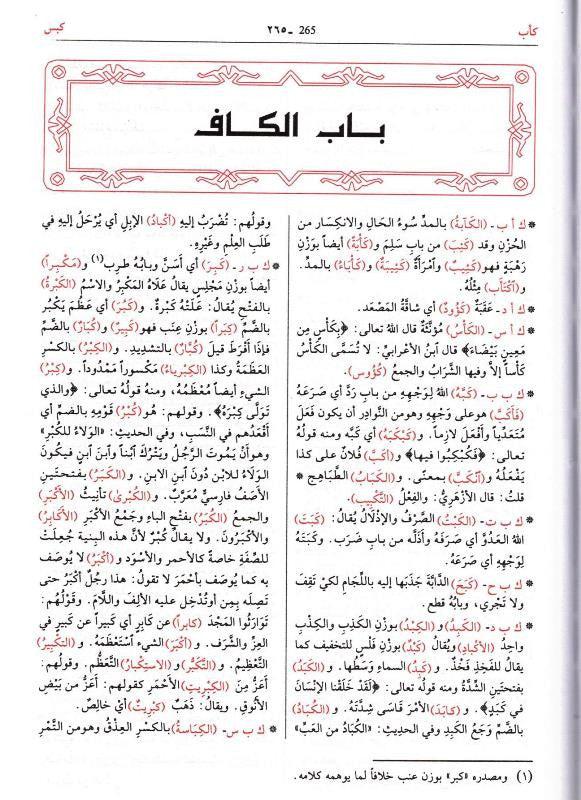 كأب
265 ـ ٢٦٥
كبس
باب الكاف
* ك أ ب ـ (الكَآبَةُ) بالمدِّ سُوءُ الحَالِ والانْكِسَار من
الحُزْنِ وقد (كَئِبَ) من بابِ سَلِمَ و(كَأْبَةً) أيضاً بوَزْنِ
رَهْبَةٍ فهو (كَئِيبٌ) وامْرَأَةٌ (كَئِيبَةٌ) و(كَأْبَاءُ) بالمدِّ.
و(اكْتَأَبَ) مِثْلُهُ.
* ك أ د ـ عَقَبَةٌ (كَؤُودٌ) أي شاقَّةُ المَصْعَد.
* ك أ س ـ (الكَأْسُ) مُؤَنَّثَةٌ قال اللهُ تعالى: ﴿بِكَأْسٍ مِن
مَعِينٍ بَيْضَاءَ﴾ قال ابنُ الأعرابيِّ: لا تُسَمَّى الكَأْسُ
كَأْساً إلاَّ وفيها الشَّرَابُ والجمعُ (كُؤُوس).
* ك ب ب ـ (كَبَّهُ) اللهُ لِوَجْهِهِ من باب رَدَّ أي صَرَعَهُ
(فَأَكَبَّ) هو على وَجْهِهِ وهو من النَّوادِر أن يكون فَعَلَ
مُتَعَدِّياً وأَفْعَلَ لازماً. و(كَبْكَبَهُ) أي كَبَّه ومنه قولُه
تعالى: ﴿فَكُبْكِبُوا فيها﴾ و(أَكَبَّ) فُلانٌ على كذا
يَفْعَلُهُ و(انْكَبَّ) بمعنًى. و(الكَبَابُ) الطَّباهِج *
قلتُ: قال الأزْهَرِيُّ: والفِعْلُ (التَّكْبِيب).
* ك ب ت ـ (الكَبْتُ) الصَّرْفُ والإذْلالُ يُقالُ: (كَبَتَ)
اللهُ العَدُوَّ أي صَرَفَهُ وأَذَلَّه من باب ضَرَب. وكَبَتَهُ
لِوَجْهِهِ أي صَرَعَهُ.
* ك ب ح ـ (كَبَحَ) الدَّابَّةَ جَذَبَها إليه باللِّجَام لكيْ تَقِفَ
ولا تَجْري، وبابُه قطع.
* ك ب د ـ (الكَبِدُ) و(الكِبْدُ) بوزنِ الكَذِبِ والكِذْبِ
واحدُ (الأَكْبَادِ) ويُقالُ (كَبْدٌ) بوزنِ فَلْسٍ للتخفيف كما
يقالُ للفَخِذِ فَخْذٌ. و(كَبِدُ) السماءِ وَسَطُها. و(الكَبَدُ)
بفتحتَينِ الشِّدَّةُ ومنه قولُه تعالى: ﴿لَقَدْ خَلَقْنَا الإنْسَانَ
في كَبَدٍ﴾. و(كابَدَ) الأمْرَ قاسَى شِدَّتَهُ. و(الكُبَادُ)
بالضَّمِّ وَجَعُ الكَبِدِ وفي الحديثِ: «الكُبَادُ من العَبِّ»
وقولُهم: تُضْرَبُ إليهِ (أكْبَادُ) الإبِلِ أي يُرْحَلُ إليه في
طَلَبِ العِلْمِ وغَيْرِهِ.
* ك ب ر ـ (كَبِرَ) أي أَسَنَّ وبابُهُ طرِب(١) و(مَكْبِراً)
أيضاً بوزن مَجْلِسٍ يقالُ عَلاَهُ المَكْبِرُ والاسْمُ (الكَبْرَةُ)
بالفتحِ يُقالُ: عَلَتْهُ كَبْرَةٌ. و(كَبُرَ) أي عَظُمَ يَكْبُر
بالضَّمِّ (كِبَراً) بوزنِ عِنَبٍ فهو (كَبِيرٌ) و(كُبَارٌ) بالضَّمِّ
فإذا أفْرَطَ قيلَ (كُبَّارٌ) بالتشديدِ. و(الكِبْرُ) بالكسرِ
العَظَمَةُ وكذا (الكِبْرِياءُ) مَكْسوراً مَمْدُوداً. و(كِبْرُ)
الشيءِ أيضاً مُعْظَمُهُ، ومنه قولُهُ تعالى: ﴿والذي
تَوَلَّى كِبْرَهُ﴾. وقولهم: هو (كُبْرُ) قَوْمِهِ بالضمِّ أي
أَقْعَدُهم في النَّسَبِ، وفي الحديثِ: «الوَلَاءُ للكُبْرِ»
وهو أنْ يَمُوتَ الرَّجُلُ ويَتْرُكَ ابْناً وابنَ ابنٍ فيكُونُ
الوَلَاءُ للابْنِ دُونَ ابنِ الابنِ. و(الكَبَرُ) بفتحتَينِ
الأصَفُ فارِسِيٌّ مُعَرَّبٌ. و(الكُبْرَى) تأنيثُ (الأَكْبَرِ)
والجمعُ (الكُبَرُ) بفَتْحِ الباءِ وجَمْعُ الأَكْبَرِ (الأكَابِرُ)
والأكْبَرُونَ. ولا يقالُ كُبْرٌ لأنَّ هذه البِنيةَ جُعِلَتْ
للصِّفَةِ خاصةً كالأحمرِ والأسْود و(أكْبَرُ) لا يُوصَف
به كما يُوصَف بأحْمَرَ لا تقولُ: هذا رجُلٌ أكْبَرُ حتى
تَصِلَه بِمِنْ أو تُدْخِلَ عليه الألِفَ واللَّامَ. وقَوْلُهُم:
تَوَارَثُوا المَجْدَ (كابِراً) عن كابِرٍ أي كَبِيراً عن كَبِيرٍ في
العِزِّ والشَّرَفِ. و(أكْبَرَ) الشيءَ اسْتَعْظَمَهُ. و(التَّكْبِيرُ)
التَّعْظِيمُ. و(التَّكَبُّرُ) و(الاسْتِكْبارُ) التَّعَظُّم. وقولهم:
أَعَزُّ مِنَ (الكِبْرِيتِ) الأحْمَرِ كقولهم: أَعَزُّ مِن بَيْضِ
الأَنُوقِ. ويقالُ: ذَهَبٌ (كِبْرِيتٌ) أيْ خالِصٌ.
* ك ب س ـ (الكِبَاسَةُ) بالكسرِ العِذْقُ وهو من التَّمْرِ
(١) ومصدره «كبر» بوزن عنب خلافاً لما يوهمه كلامه.